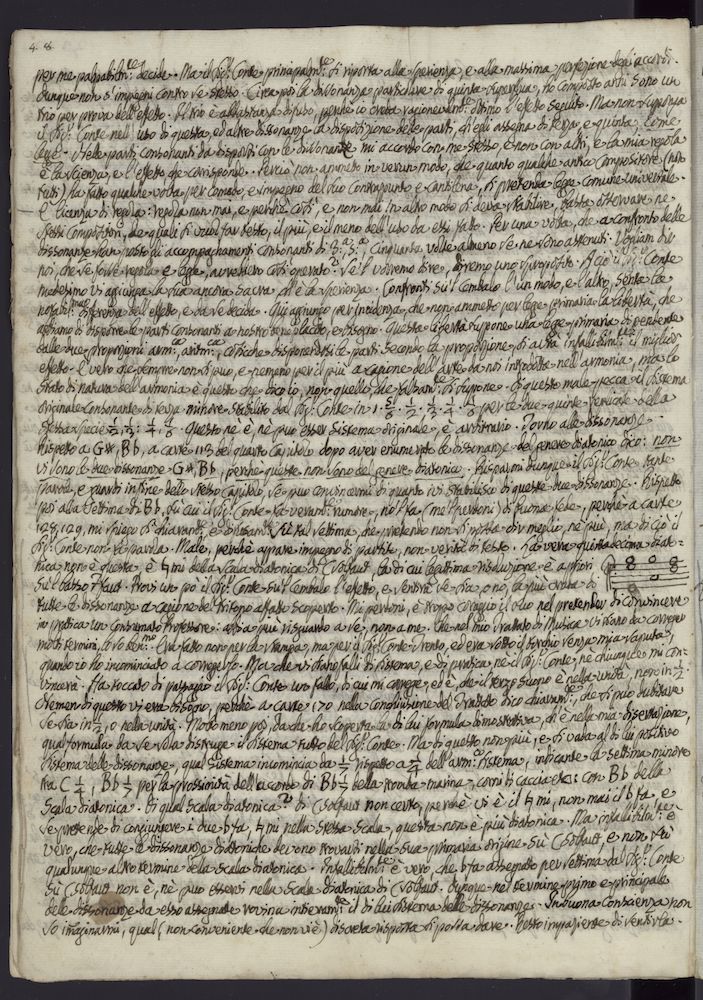 4. 8.
per me palpabilm.te decide. Ma il Sig.r Conte principalm.te si riporta alla sperienza, e alla massima perfezione degl'accordi.
Dunque non s'impegni contro se stesso. Circa poi la dissonanza particolare di quinta superflua, ho composto arii sono un
trio per prova dell'effetto. Il trio è abbastanza diffuso, perché io creda ragionevolm.te ottimo l'effetto seguito. Ma non supponga
il Sig.r Conte nell'uso di questa, ed altre dissonanze la disposizione delle parti, ch'egli assegna di terza e quinta, come
legge. Nelle parti consonanti da disporsi con le dissonanze mi accordo con me stesso, e non con altri, e la mia regola
è la scienza, e l'effetto che corrisponde. Perciò non ammetto in verun modo, che quanto qualche antico Compositore (non
tutti) ha fatto qualche volta per comodo, e impegno del suo Contrapunto e cantilena, si pretenda legge comune universale.
È licenza di regola: regola non mai, e perché così, e non mai in altro modo si debba stabilire, basta osservare ne
stessi Compositori, de quali si vuol far testo, il più, e il meno dell'uso da essi fatto. Per una volta, che a confronto delle
dissonanze han posto gli accompagnamenti consonanti di 8.a 5.a Cinquanta volte almeno se ne sono astenuti. Vogliam dir
noi, che se fosse regola e legge, avrebbero così operato? Se 'l vorremo dire, diremo uno sproposito. A ciò il Sig.r Conte
medesimo vi aggiunga la sua ancora sacra alle la sperienza. Confronti su 'l cembalo l'un modo, e l'altro, senta la
notabil.ma differenza dell'effetto, e da se decida. Qui aggiungo per incidenza, che non ammetto per legge primaria la libertà, che
abbiamo di disporre le parti consonanti a nostro beneplacito, e bisogno. Questa libertà suppone una legge primaria dipendente
dalle due proporzioni arm.ca, aritm.ca, cosicche disponendosi le parti secondo la proporzione, si avrà infallibilm.te il miglior
effetto. È vero che sempre non si può, e nemeno per il più a cagione dell'arte da noi introdotta nell'armonia, ma lo
stato di natura dell'armonia è questo che dico io, non quello che falsam.te si suppone. Di questo male pecca il sistema
originale consonante di terza minore stabilito dal Sig.r Conte in
stessa specie. Questo nè è, ne può esser sistema originale, è arbitrario. Torno alle dissonanze.
Rispetto a G#, Bb, a carte 113 del quarto Capitolo dopo aver enumerate le dissonanze del genere diatonico dico: non
vi sono le due dissonanze G#, Bb, perche queste non sono del genere diatonico. Risparmi dunque il Sig.r Conte tante
parole, e guardi in fine dello stesso Capitolo, se può convincermi di quanto ivi stabilisco di queste due dissonanze. Rispetto
poi alla settima di Bb, su cui il Sig.r Conte fa veram.te rumore, no sta (me 'l perdoni) di buona fede, perchè a carte
128, 129, mi spiego sì chiaram.te, e diffusam.te su tal settima, che pretendo non si possa dir meglio, ne più, ma di ciò il
Sig.r Conte non vi parla. Male, perchè appare impegno di partito, non verità di testo. La vera quintadecima diato-
nica non è questa, è ♮ mi della scala diatonica di C solfaut, la di cui legittima risoluzione è a priori
su 'l basso F faut. Provi un po il Sig.r Conte su 'l cembalo l'effetto, e sentirà se sia, o no, la più cruda di
tutte le dissonanze a cagione del Tritono affatto scoperto. Mi perdoni, è troppo coraggio il suo nel pretender di convincere
in pratica un consumato Professore: abbia più risguardo a se, non a me. Che nel mio Trattato di Musica vi siano da corregger
molti termini, lo so ben.mo Era fatto non per la stampa, ma per il Sig.r Conte Trento, ed era sotto il torchio senza mia saputa,
quando io ho incominciato a correggerlo. Ma che vi siano falli di sistema, e di pratica nè il Sig.r Conte, nè chiunque mi con-
vincerà. Ha toccato di passaggio il Sig.r Conte un fallo, di cui mi corregge, ed è, che il terzo suono è nella unità, non in 1/2.
Nemen di questo vi era bisogno, perchè a carte 170 nella conclusione del Trattato dico chiaram.te, che si può dubitare
se sia in 1/2, o nella unità. Molto meno poi, da che ho scoperta la di lui formula dimostrativa, ch'è nella mia dissertazione,
qual formula da se sola distrugge il sistema tutto del Sig.r Conte. Ma di questo non più, e si vada al di lui positivo
sistema delle dissonanze, qual sistema incomincia da 1/7 rispetto a 1/4 dell'arm.co sistema, indicante la settima minore
tra C 1/4, Bb 1/7 per la prossimità dell'acordo di Bb 1/7 della tromba marina, corni di caccia etc: con Bb della
scala diatonica. Di qual scala diatonica? di C solfaut non certo, perchè vi è il ♮ mi, non mai il b fa, e
se pretende di congiungere i due b fa, ♮ mi nella stessa scala, questa non è più diatonica. Ma infallibilm.te è
vero, che tutte le dissonanze diatoniche devono trovarsi nella sua primaria origine su C solfaut, e non su
qualunque altro termine della scala diatonica. Infallibilm.te è vero, che b fa assegnato per settima dal Sig.r Conte
su C solfaut non è, nè può essersi nella scala diatonica di C solfaut. Dunque nel termine primo e principale
delle dissonanze da esso assegnate rovina intieram.te il di lui sistema delle dissonanze. In buona conscienza non
so imaginarmi, qual (non conveniente che non vi è) discreta risposta si possa dare. Resto impaziente di sentirla.